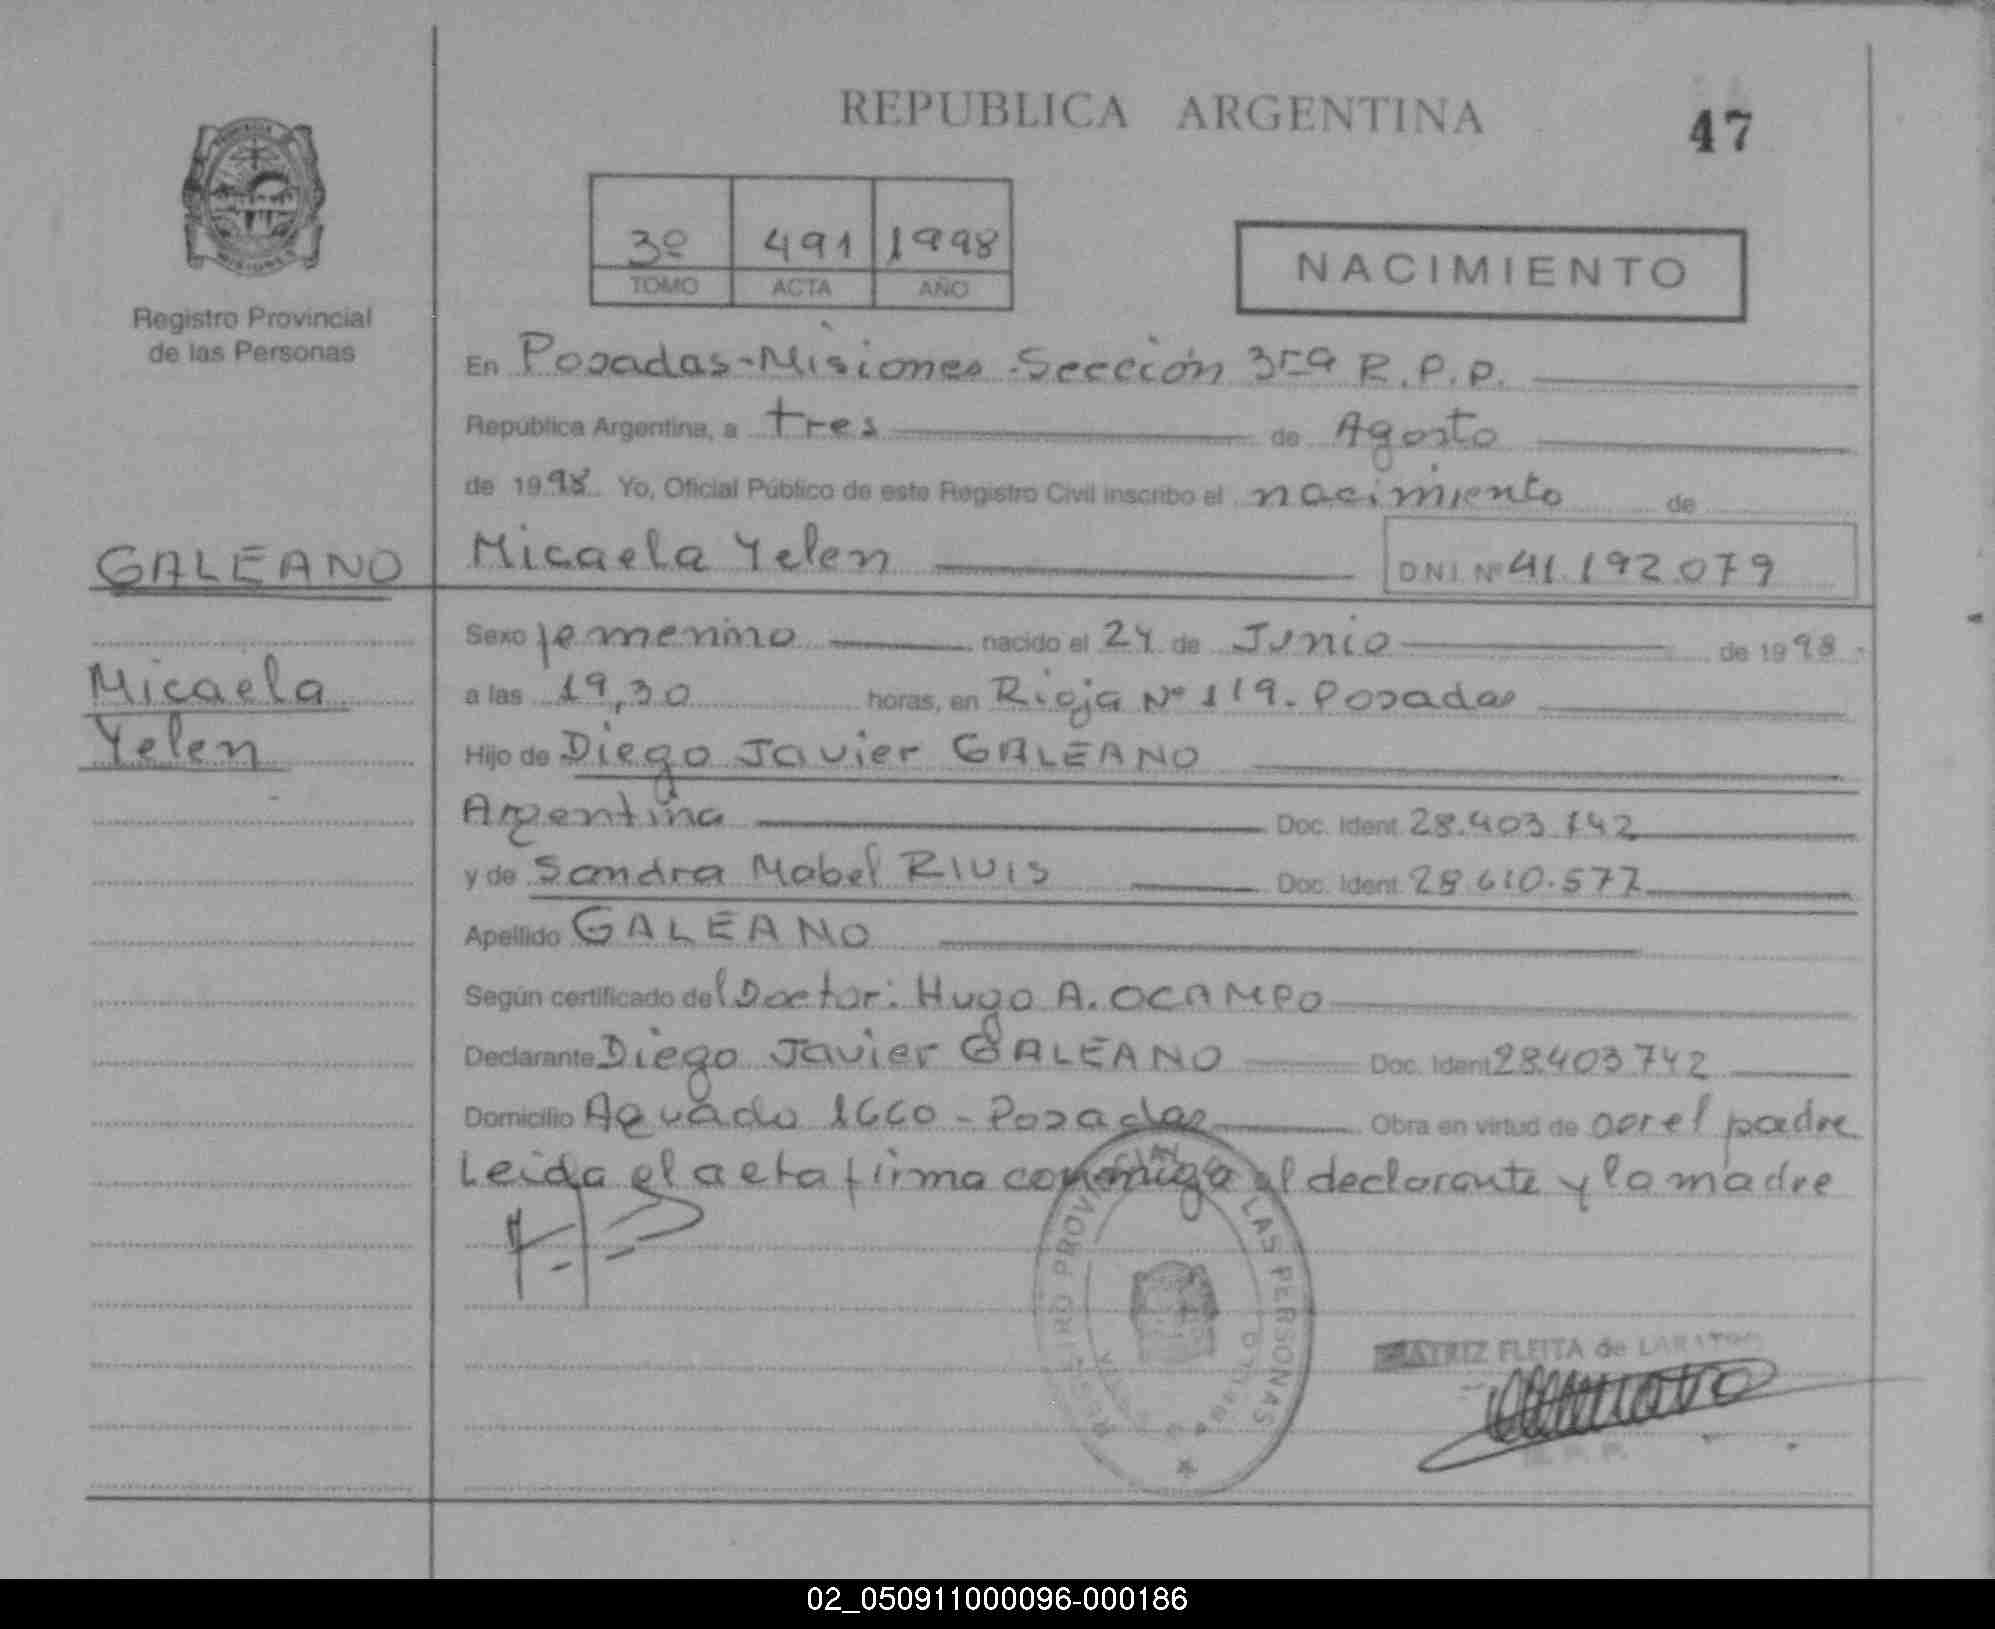 REPUBLICA ARGENTINA
47
3º 491 1998
TOMO ACTA AÑO
NACIMIENTO
Registro Provincial
de las Personas
En Posadas-Misiones-Sección 3ra R.P.P.
República Argentina, a tres de Agosto
de 1998 Yo, Oficial Público de este Registro Civil inscribo el nacimiento de
GALEANO
Micaela Yelen
D.N.I. Nº 41.192.079
Micaela
Yelen
Sexo femenino nacido el 24 de Junio de 1998
a las 19,30 horas, en Rioja Nº 119. Posadas
Hijo de Diego Javier GALEANO
Argentina Doc. Ident. 28.403.742
y de Sandra Mabel RIVIS Doc. Ident. 28.610.577
Apellido GALEANO
Según certificado del Doctor: Hugo A. OCAMPO
Declarante Diego Javier GALEANO Doc. Ident. 28.403.742
Domicilio Aguado 1660 - Posadas Obra en virtud de ser el padre
Leida el acta firma conmigo el declarante y la madre
REGISTRO PROVINCIAL DE LAS PERSONAS
FLEITA de
R. P. P.
02_050911000096-000186